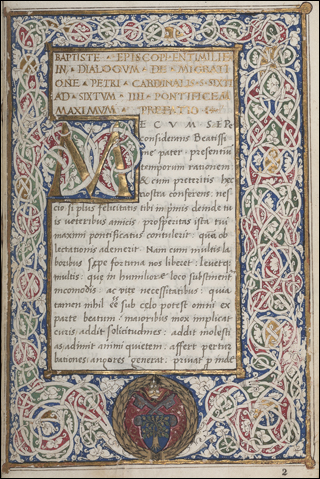 BAPTISTE EPISCOPI ENTIMILIE
IN DIALOGVM DE MIGRATI
ONE PETRI CARDINALIS S SIXTI
AD SIXTVM IIII PONTIFICEM
MAXIMVM PREFATIO
M ECVM SEPE
considerans Beatissi
me pater presentiu
temporum rationem
& cum preteritis
nostra conferens nes
cio si plus felicitatis tibi in primis deinde tu
is veteribus amicis prosperitas ista tui
maximi pontificatus contulerit que ob
lectationis ademerit Nam cum multis la
boribus sæpe fortuna nos libecet leuetque
multis que in humiliore loco substinent
incomodis ac vite necessitatibus
tamen nihil est sub celo potest omni ex
parte beatum maioribus mox implicat
curis addit solicitudines addit molesti
as adimit animi quietem affert pertur
bationes angores generat privat
2